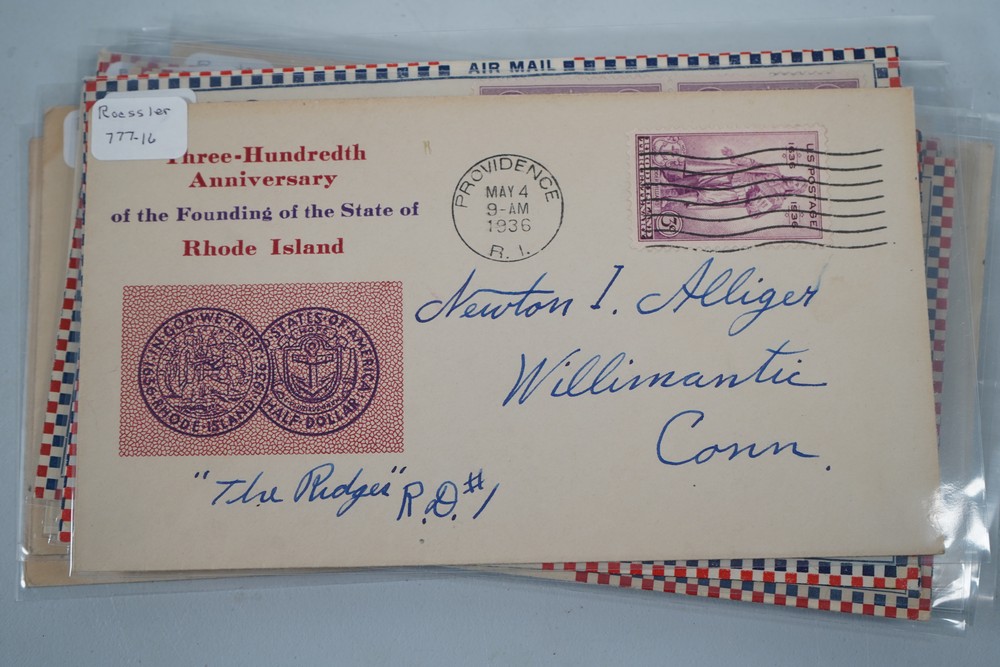 AIR MAIL
Roessler
777-16
Three-Hundredth
Anniversary
of the Founding of the State of
Rhode Island
PROVIDENCE
MAY 4
9-AM
1936
R. I.
U.S. POSTAGE
1636 1936
3¢
Newton I. Alliger
Willimantic
Conn.
"The Ridges" R.D. #1
IN·GOD·WE·TRUST
1636 RHODE·ISLAND 1936
STATES·OF·AMERICA
HOPE
HALF·DOLLAR